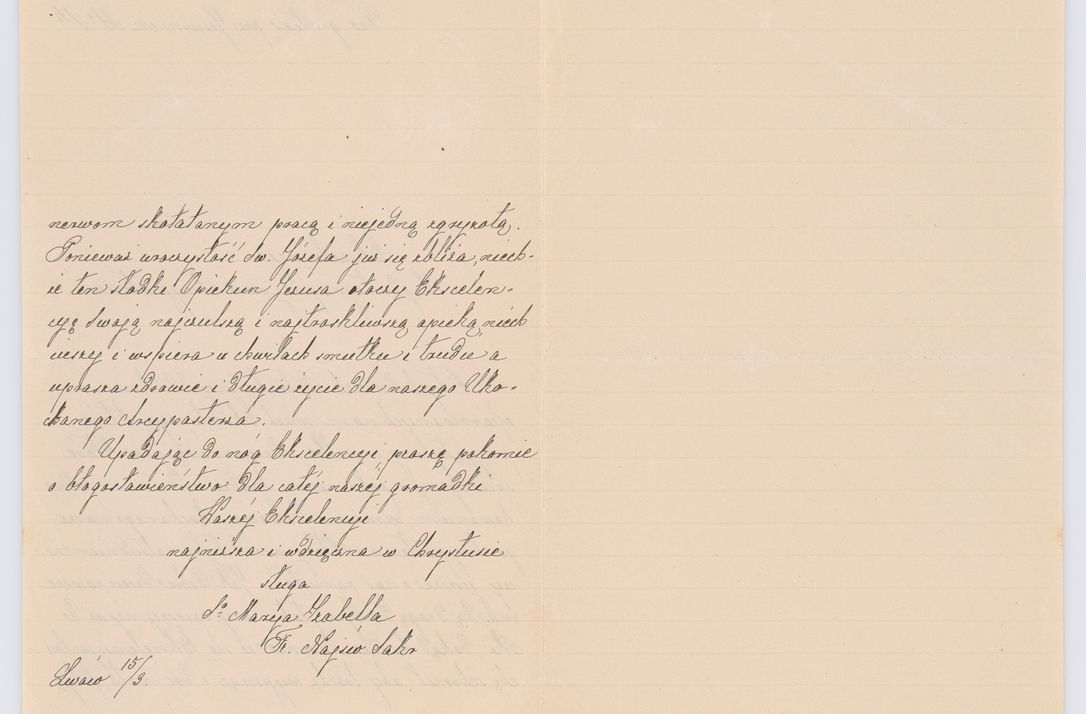 nerwom skołatanym pracą i niejedną zgryzotą.
Ponieważ uroczystość św. Józefa już się zbliża, niech-
że ten słodki Opiekun Jezusa otoczy Ekscelen-
cyę Swoją najczulszą i najtroskliwszą opieką, niech
cieszy i wspiera w chwilach smutku i trudu a
uprasza zdrowie i długie życie dla naszego Uko-
chanego Arcypasterza.
Upadając do nóg Ekscelencyi proszę pokornie
o błogosławieństwo dla całéj naszéj gromadki
Waszéj Ekscelencyi
najniższa i wdzięczna w Chrystusie
sługa
Sª Marya Izabella
Fr. Najśw Sakr
Lwów 15/3.